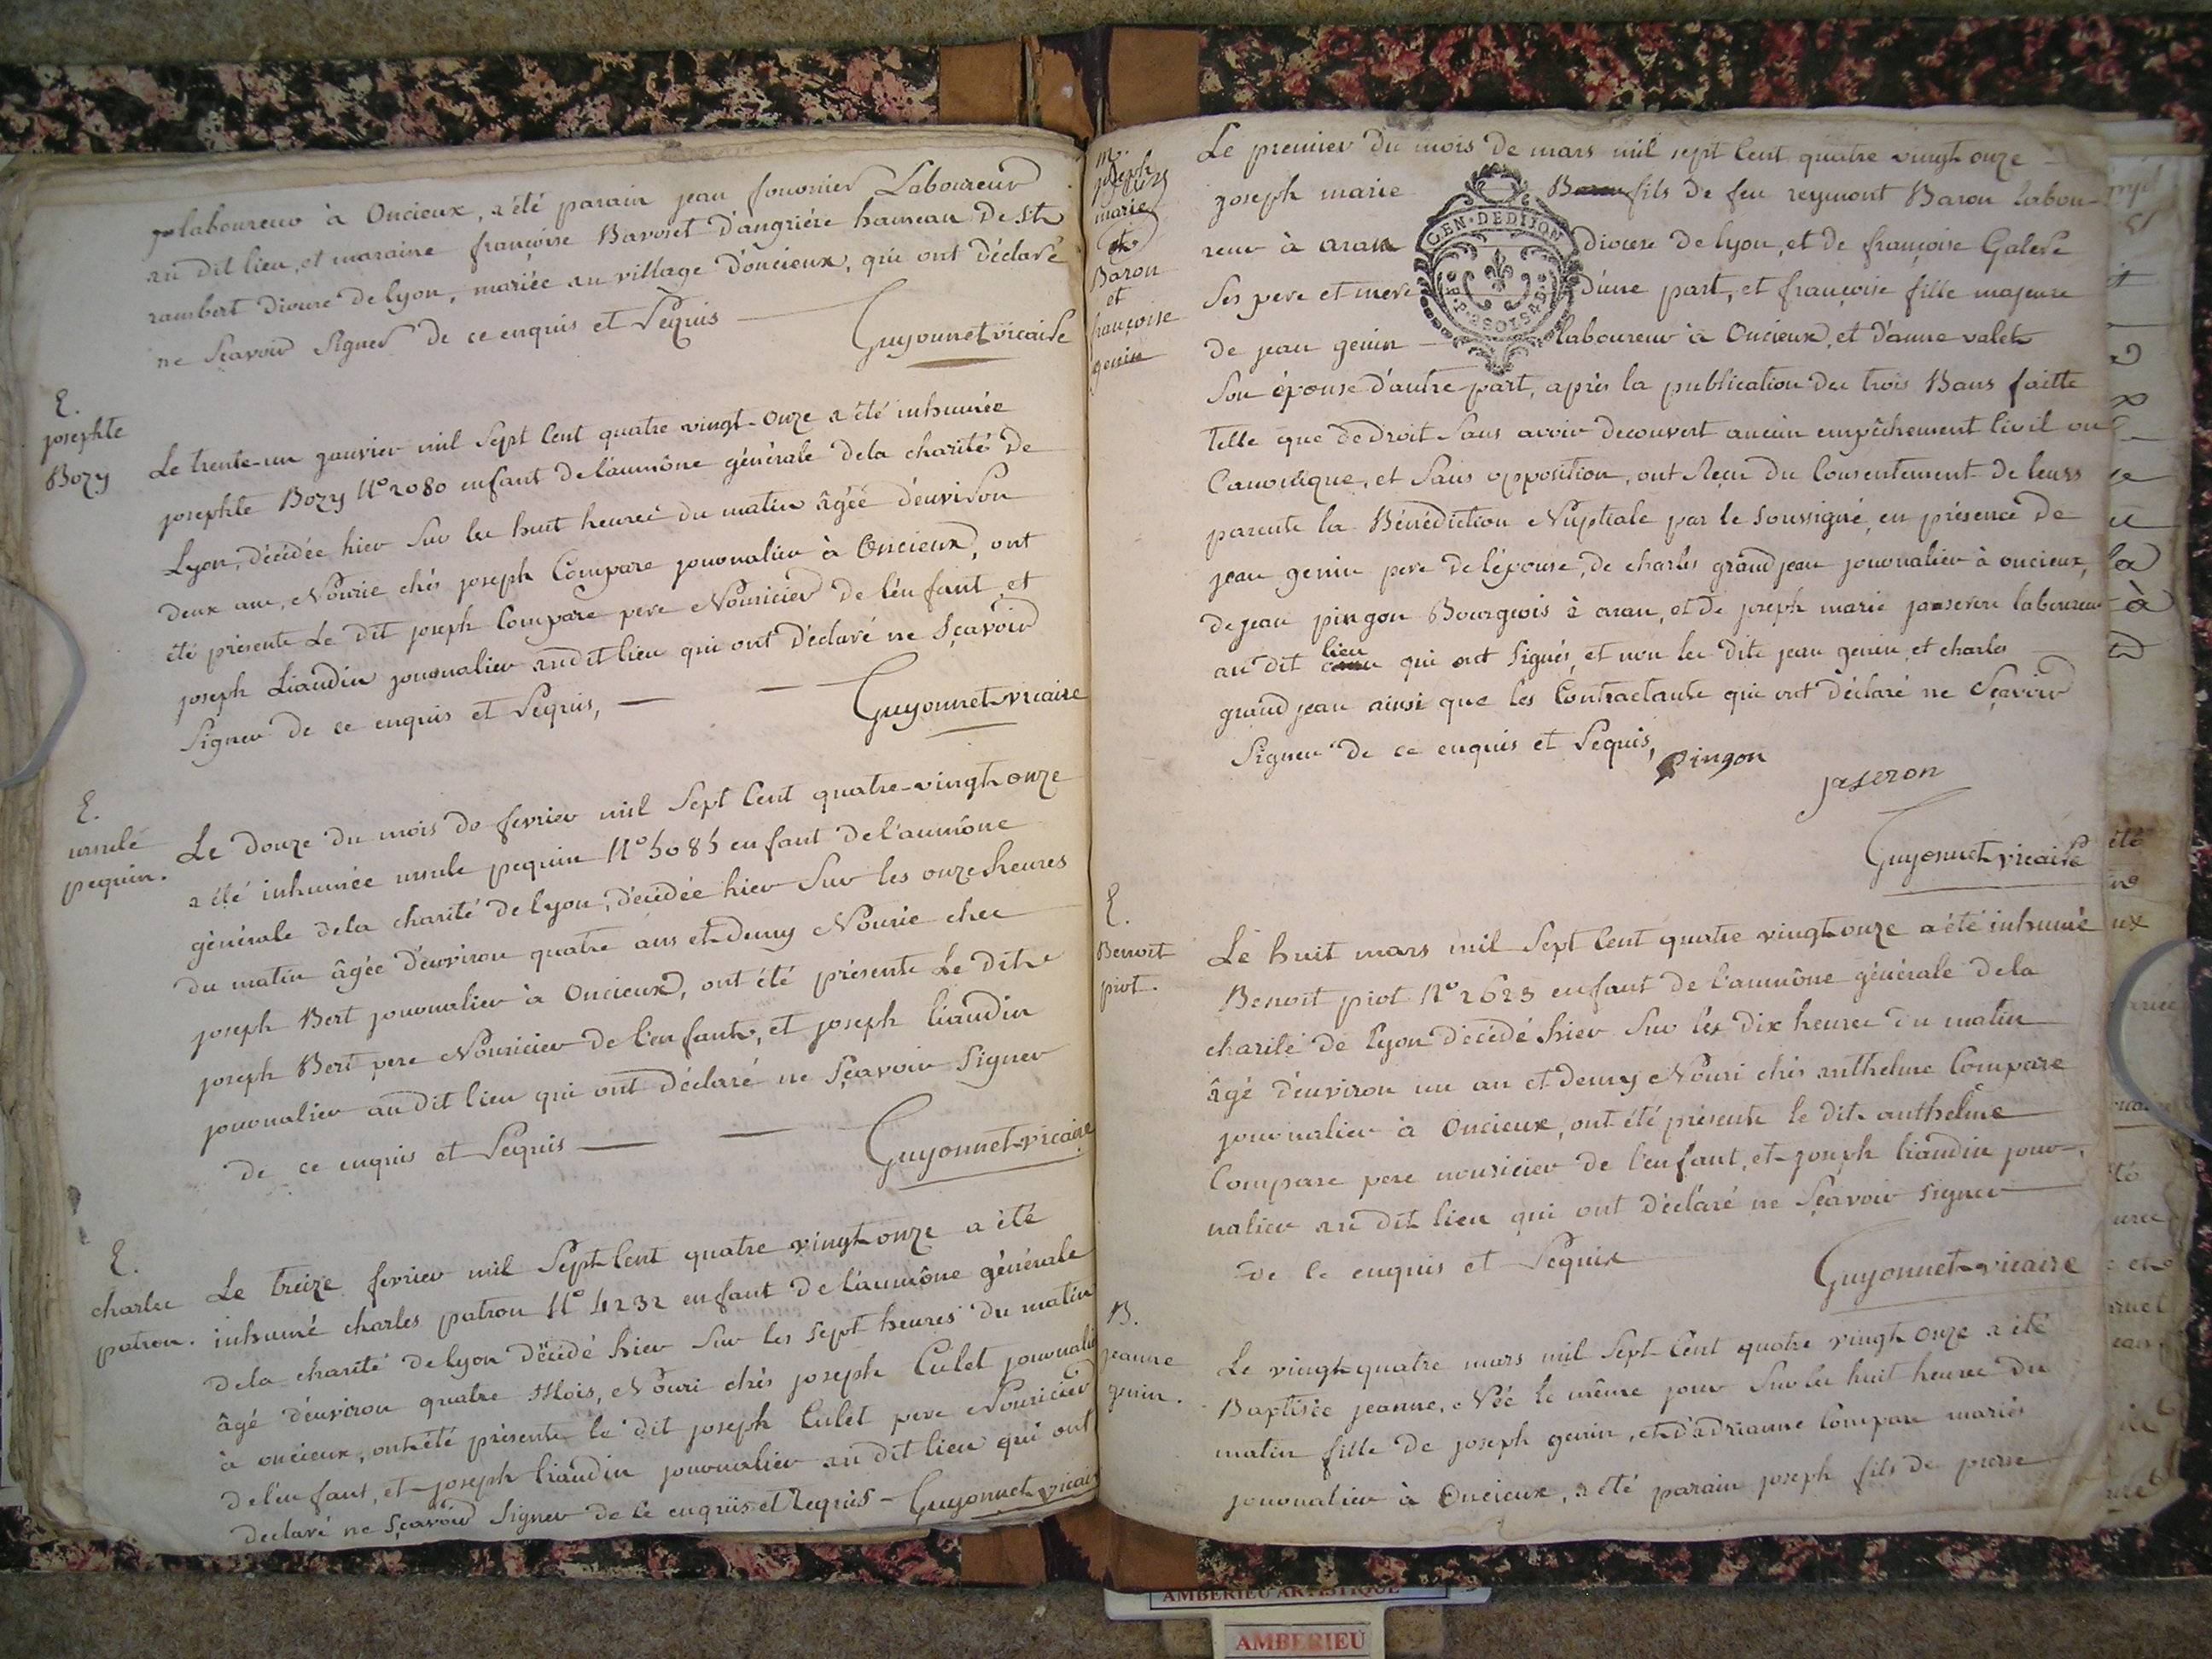 laboureur à Oncieux, a été parain jean fournier Laboureur
au dit lieu, et maraine françoise Bavoset d'angriére hameau de st
rambert diocese de lyon, mariée au village d'oncieux, qui ont déclaré
ne sçavoir signer de ce enquis et requis
Guyonnet vicaire
E.
josephte
Bozy
Le trente-un janvier mil sept cent quatre vingt-onze a été inhumée
josephte Bozy N° 2080 enfant de l'aumône générale de la charité de
Lyon, décédée hier sur les huit heures du matin âgéé d'environ
deux ans, Nourie chés joseph Compare journalier à Oncieux, ont
été présents Le dit joseph Compare pere Nouricier de l'enfant, et
joseph Liaudin journalier au dit lieu qui ont déclaré ne sçavoir
signer de ce enquis et requis,
Guyonnet vicaire
E.
ursule
pequin.
Le douze du mois de fevrier mil sept cent quatre-vingt onze
a été inhumée ursule pequin N° 5085 enfant de l'aumône
générale de la charité de lyon, décédée hier sur les onze heures
du matin âgée d'environ quatre ans et demy Nourie chez
joseph Bert journalier à Oncieux, ont été présents Le dit
joseph Bert pere Nouricier de l'enfant, et joseph liaudin
journalier au dit lieu qui ont déclaré ne sçavoir signer
de ce enquis et requis
Guyonnet vicaire
E.
charles
patron.
Le treize fevrier mil sept cent quatre vingt onze a été
inhumé charles patron N° 4232 enfant de l'aumône générale
de la charité de lyon décédé hier sur les sept heures du matin
âgé d'environ quatre Mois, Nouri chés joseph Culet journalier
à oncieux, ont été présents le dit joseph Culet pere Nouricier
de l'enfant, et joseph liaudin journalier au dit lieu qui ont
declaré ne sçavoir signer de ce enquis et requis - Guyonnet vicaire
m.
joseph
marie
Baron
et
françoise
genin
Le premier du mois de mars mil sept cent quatre vingt onze
joseph marie fils de feu reymont Baron Labou-
reur à aran diocese de lyon, et de françoise Galere
ses pere et mere d'une part, et françoise fille majeure
de jean genin laboureur à Oncieux, et d'anne valet
GEN · DE DIJON
son épouse d'autre part, après la publication des trois Bans faitte
telle que de droit sans avoir decouvert aucun empêchement civil ou
Canonique, et sans opposition, ont reçu du consentement de leurs
parents la Bénédiction Nuptiale par le soussigné, en présence de
jean genin pere de l'épouse, de charles grand jean journalier à oncieux,
de jean pingon Bourgeois à aran, et de joseph marie jaseron laboureur
au dit lieu qui ont signés, et non les dits jean genin, et charles
grand jean ainsi que les Contractants qui ont déclaré ne sçavoir
signer de ce enquis et requis,
pingon
jaseron
Guyonnet vicaire
E.
Benoit
piot.
Le huit mars mil sept cent quatre vingt onze a été inhumé
Benoit piot N° 2623 enfant de l'aumône générale de la
charité de lyon décédé hier sur les dix heures du matin
âgé d'environ un an et demy Nouri chés anthelme Compare
journalier à Oncieux, ont été présents le dit anthelme
Compare pere nouricier de l'enfant, et joseph liaudin jour-
nalier au dit lieu qui ont déclaré ne sçavoir signer
de ce enquis et requis
Guyonnet vicaire
B.
jeanne
genin.
Le vingt quatre mars mil sept cent quatre vingt onze a été
Baptisée jeanne, Née le même jour sur les huit heures du
matin fille de joseph genin, et d'adrianne Compare mariés
journalier à Oncieux, a été parain joseph fils de pierre
AMBERIEU ARTISTIQUE
AMBERIEU